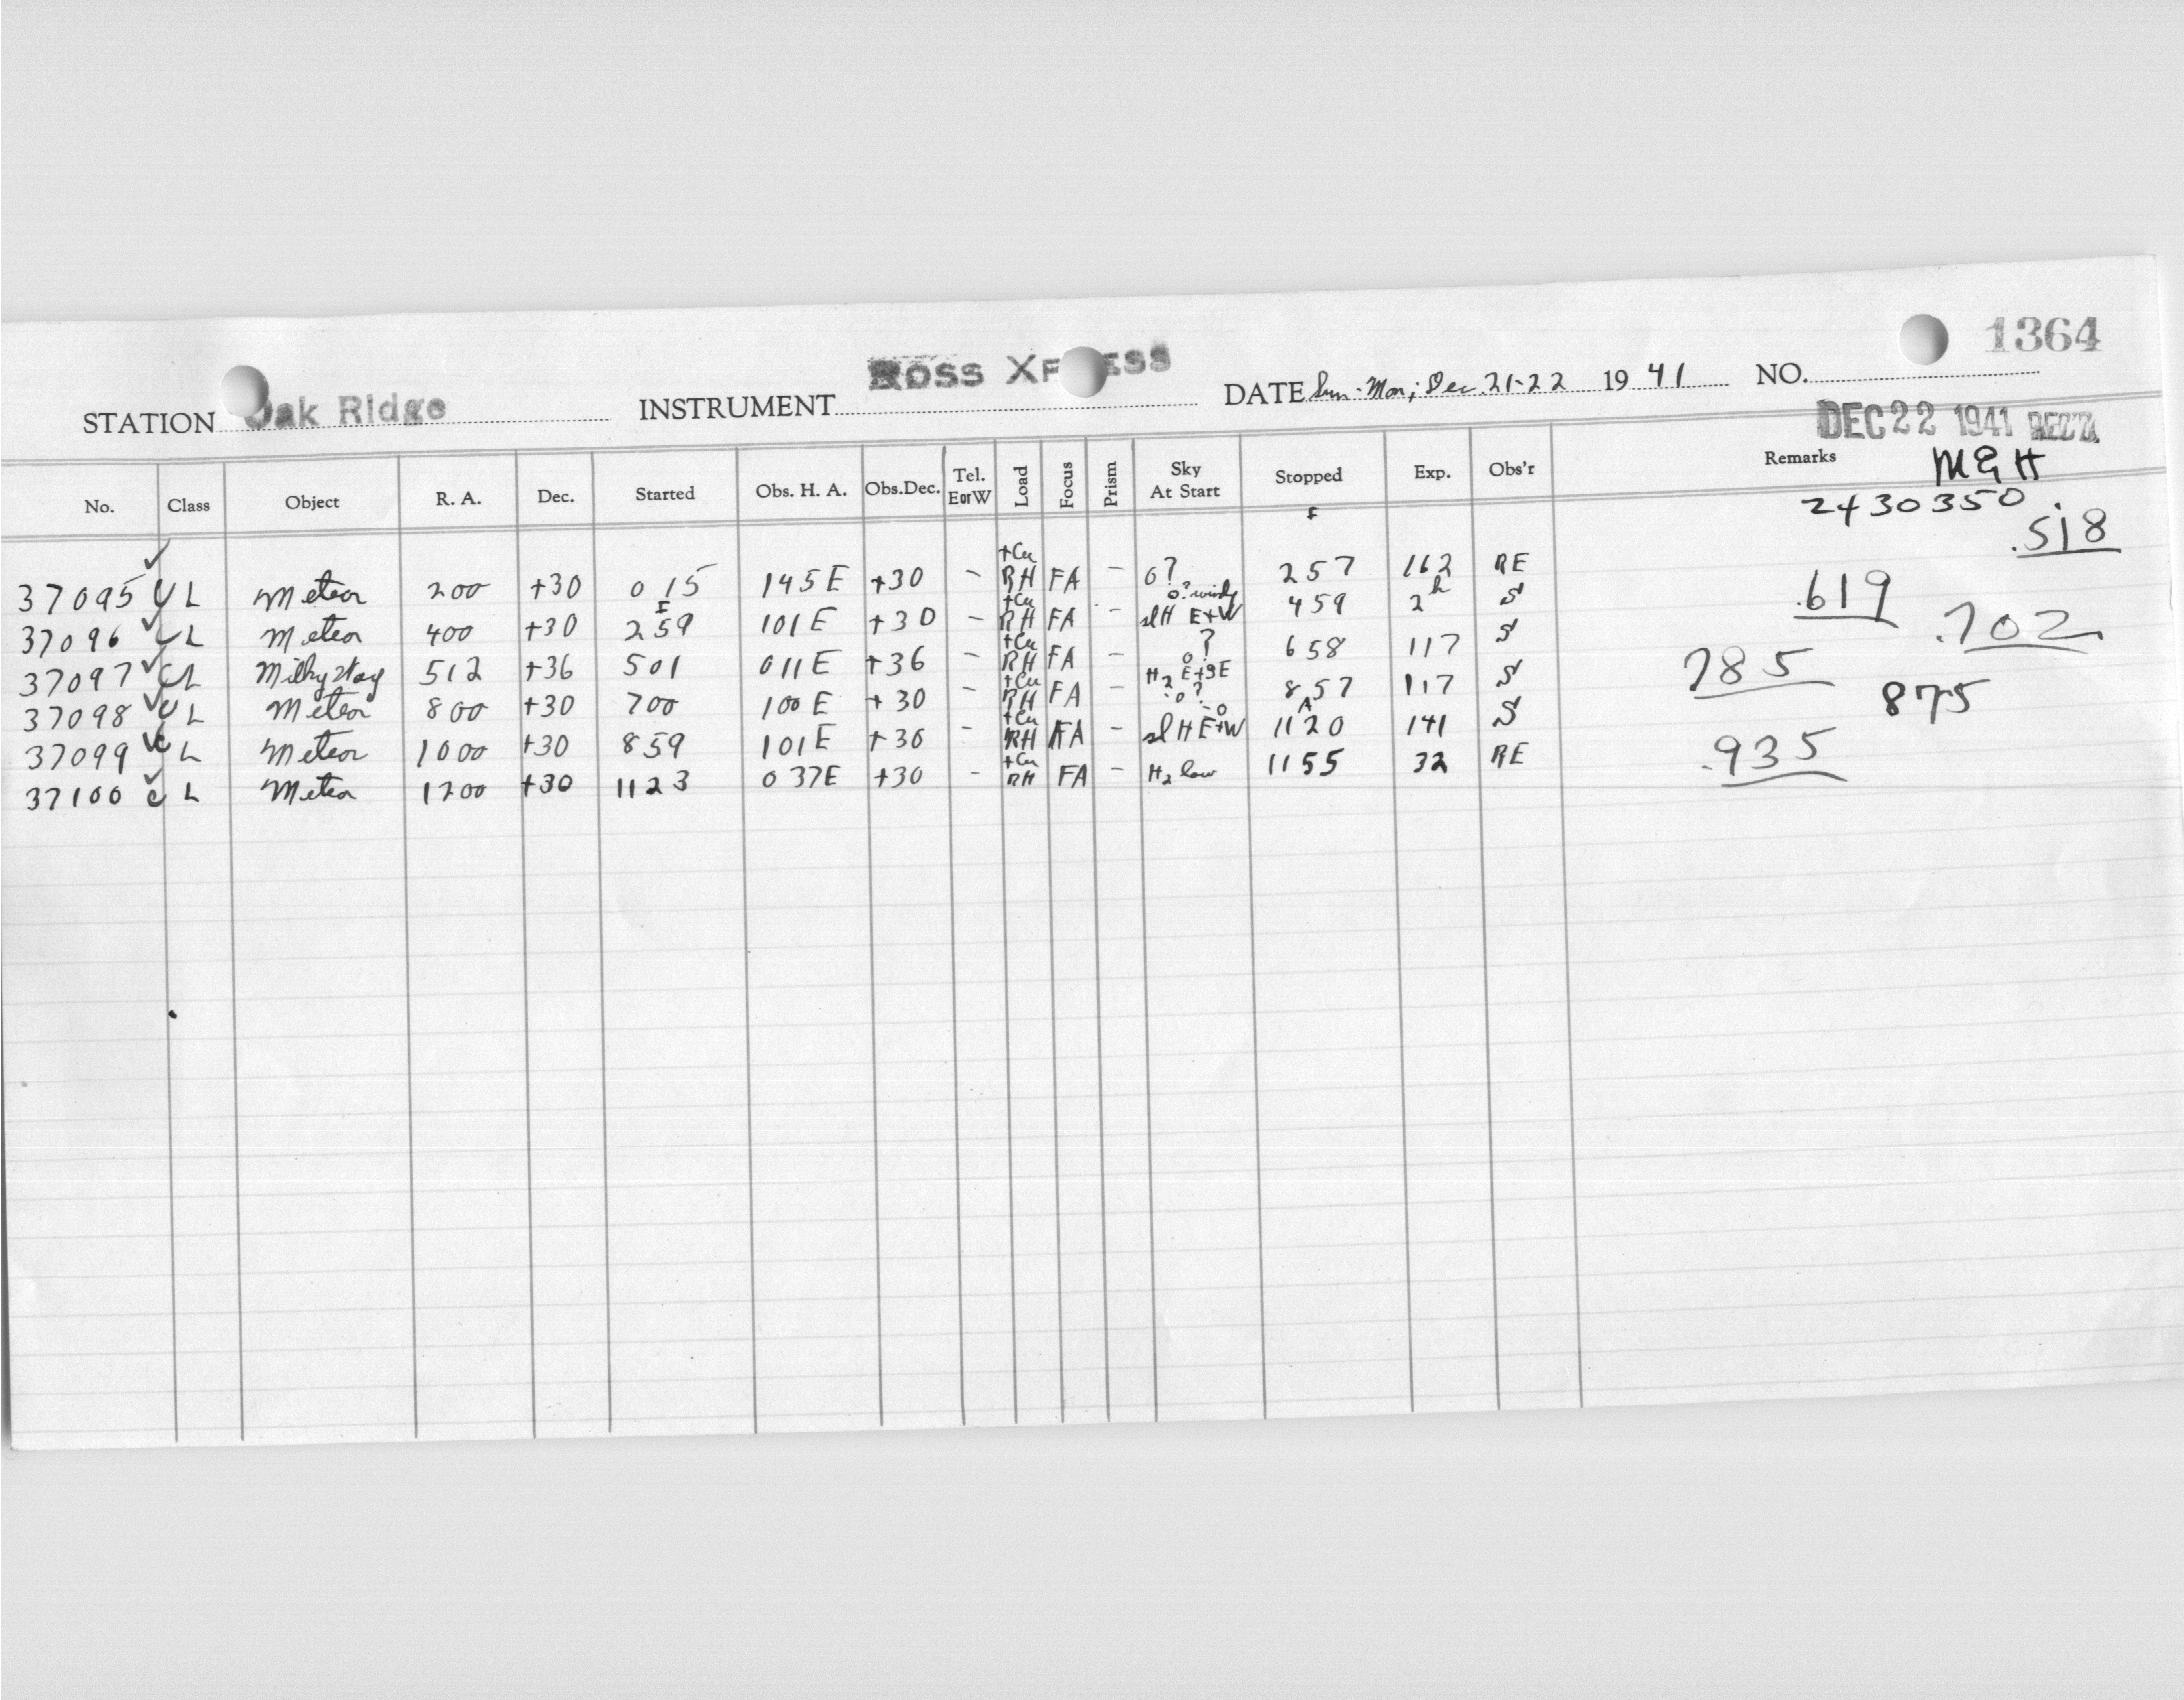 1364
STATION Oak Ridge INSTRUMENT ROSS DATE Sun-Mon; Dec. 21-22 1941 NO.
DEC 22 1941
No. Class Object R. A. Dec. Started Obs. H. A. Obs.Dec. Tel. EorW Load Focus Prism Sky At Start Stopped Exp. Obs'r Remarks
M G H
2430350
.518
+Cu
37095 C L Meteor 200 +30 0 15 145 E +30 - RH FA - 0? 257 162 RE
.619
+Cu 0? windy
37096 C L Meteor 400 +30 259 101 E +30 - RH FA - slH E+W 459 2h S
.702
+Cu ?
37097 C L Milky Way 512 +36 501 011 E +36 - RH FA - 0 658 117 S
785
+Cu H2 E+SE
37098 C L Meteor 800 +30 700 100 E +30 - RH FA - 0? 857 117 S
875
+Cu
37099 C L Meteor 1000 +30 859 101 E +30 - RH FA - slH E+W 1120 141 S
.935
+Cu
37100 C L Meteor 1200 +30 1123 0 37E +30 - RH FA - H2 low 1155 32 RE